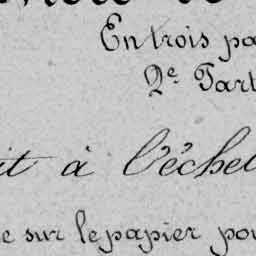 En trois pa
2e Part
it à l'échel
e sur le papier pou